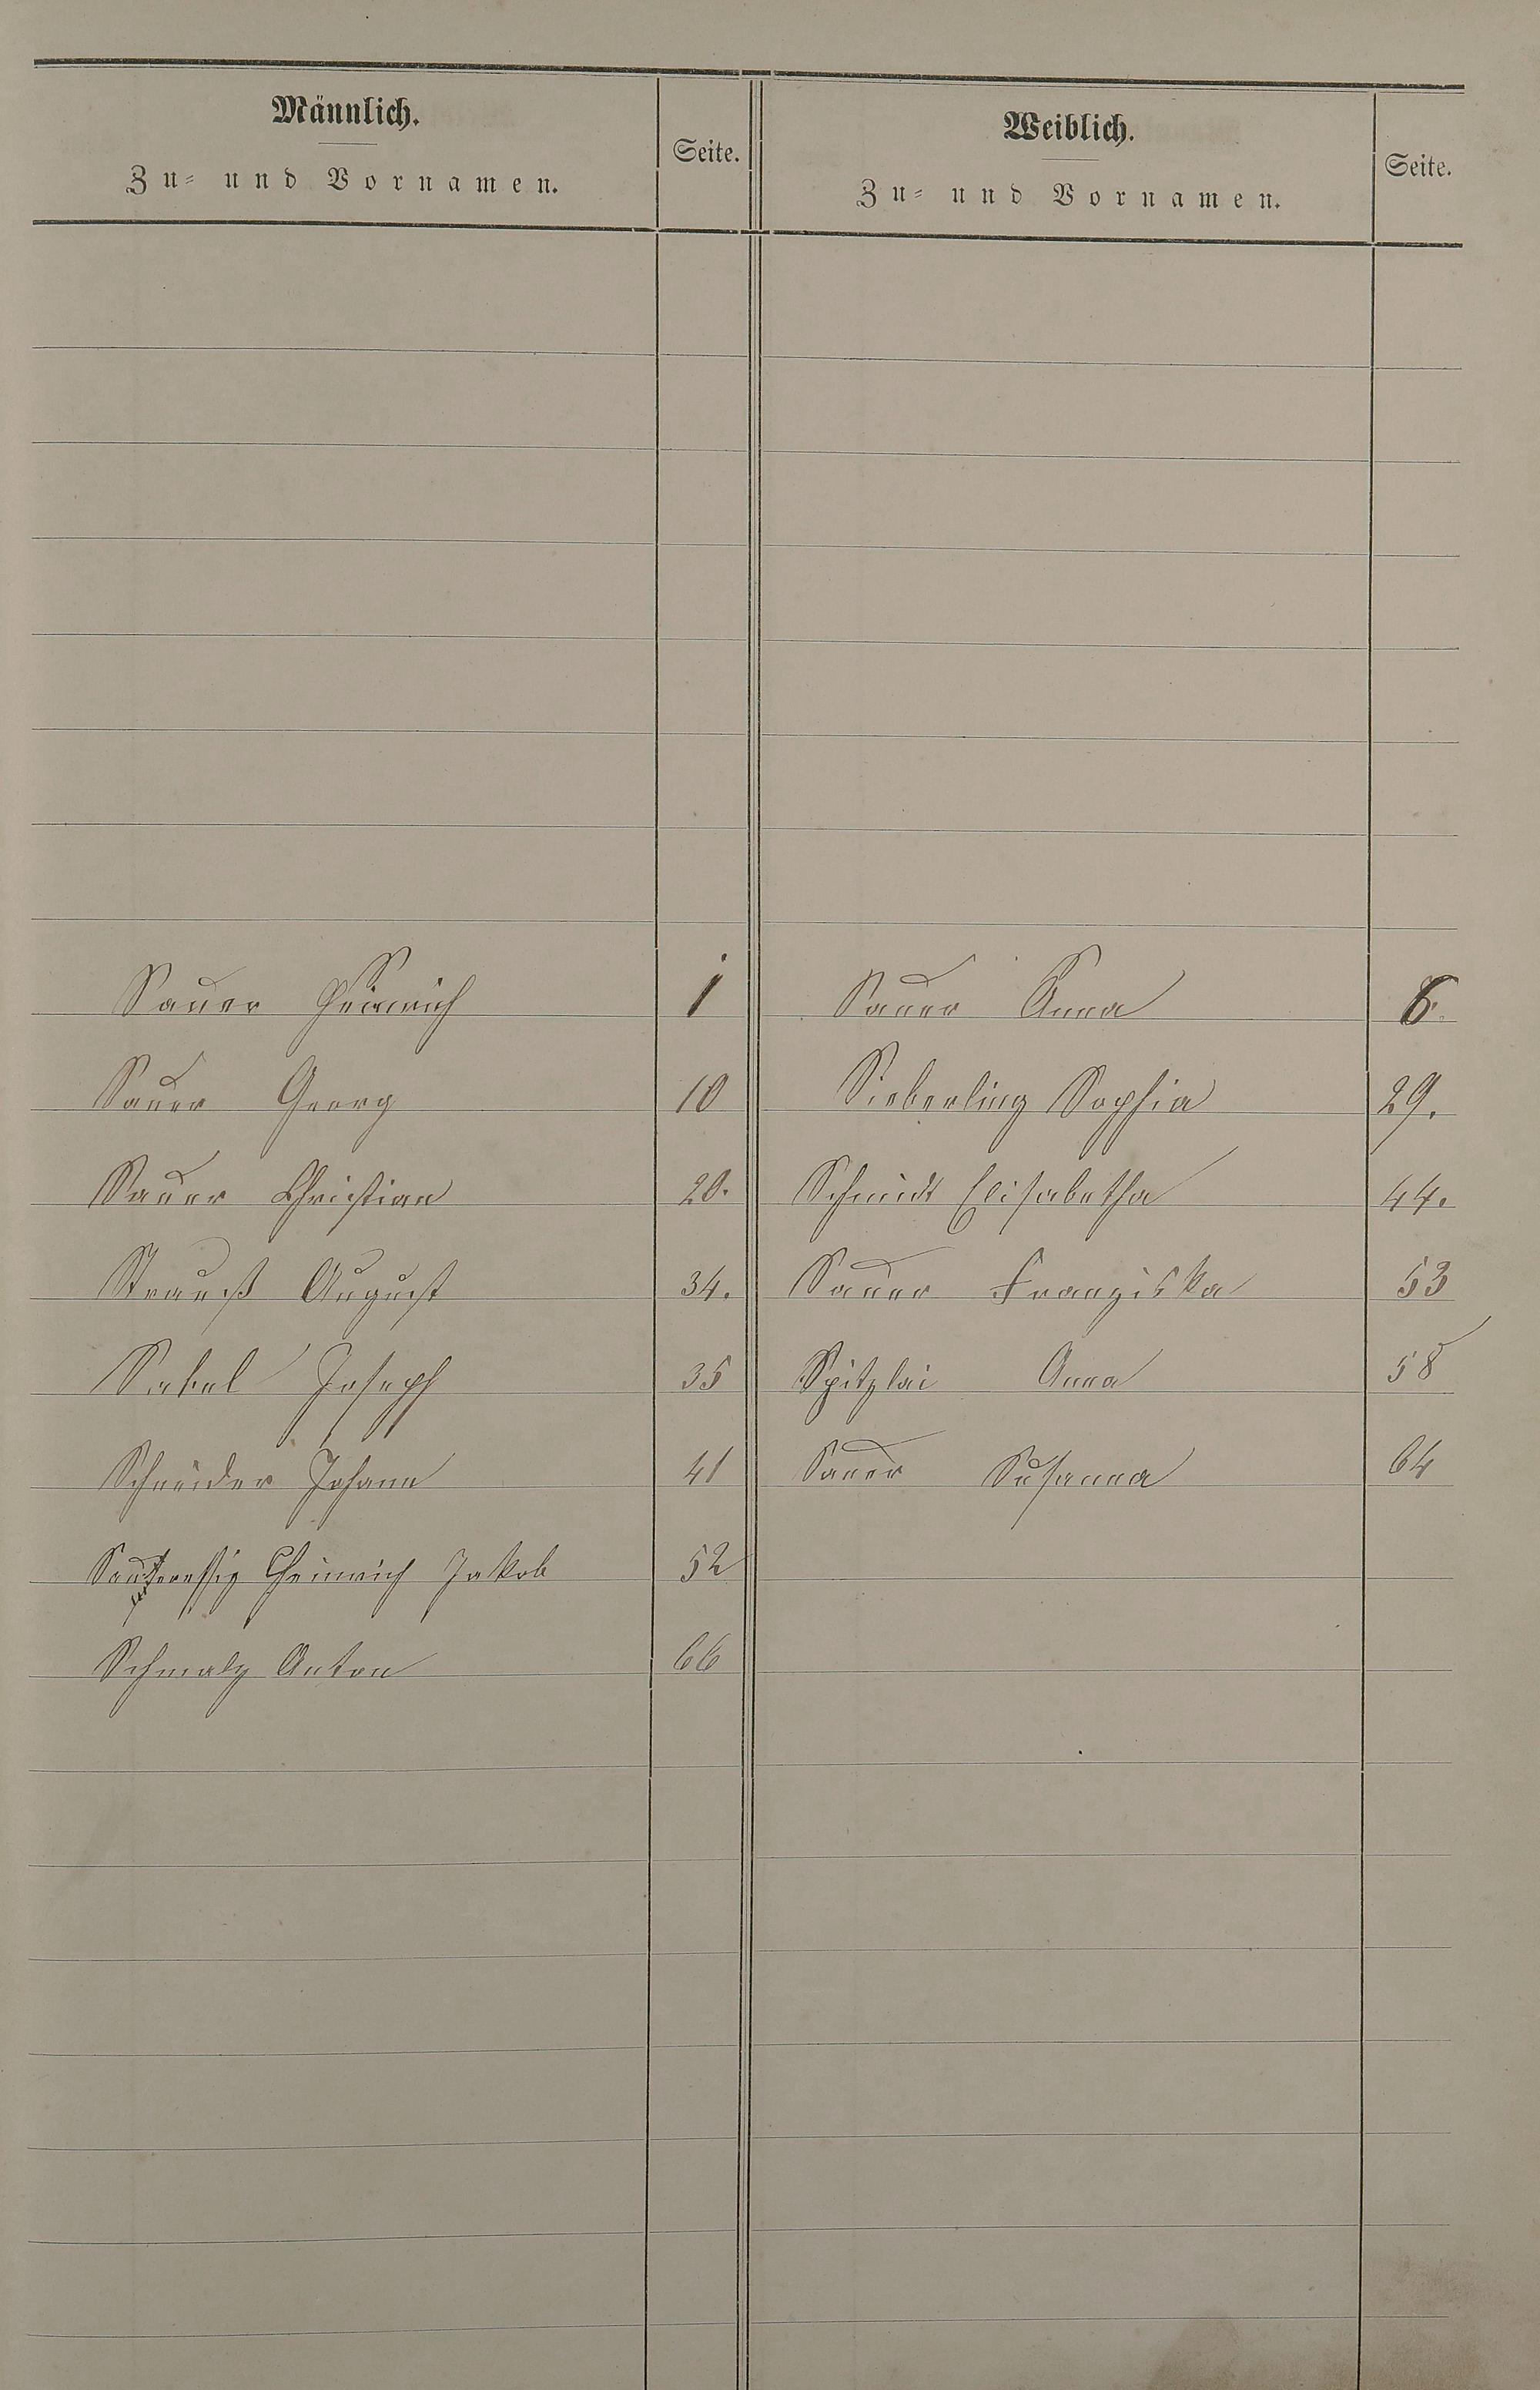 Männlich.
Zu- und Vornamen.
Seite.
Weiblich.
Zu- und Vornamen.
Seite.
Sauer Heinrich 1 Sauer Anna 6.
Sauer Georg 10 Sieberling Sophia 29.
Sauer Christian 20. Schmidt Elisabetha 44.
Strauß August 34. Sauer Franziska 53
Sabel Joseph 35 Spitzlai Anna 58
Schneider Johann 41 Sauer Susanna 64
Heinrich Jakob 52
Schmalz Anton 66